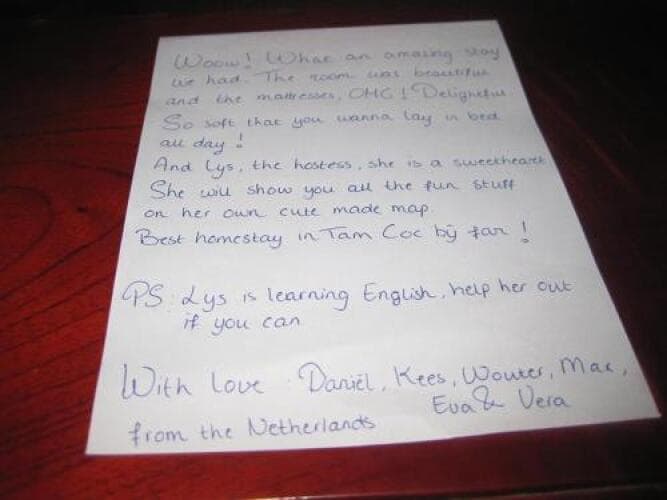 Woow! What an amazing stay
we had. The room was beautiful
and the mattresses, OMG! Delightful
So soft that you wanna lay in bed
all day!
And Lys, the hostess, she is a sweetheart
She will show you all the fun stuff
on her own cute made map.
Best homestay in Tam Coc bÿ far!
PS: Lys is learning English, help her out
if you can
With love: Daniël, Kees, Wouter, Max,
Eva & Vera
from the Netherlands